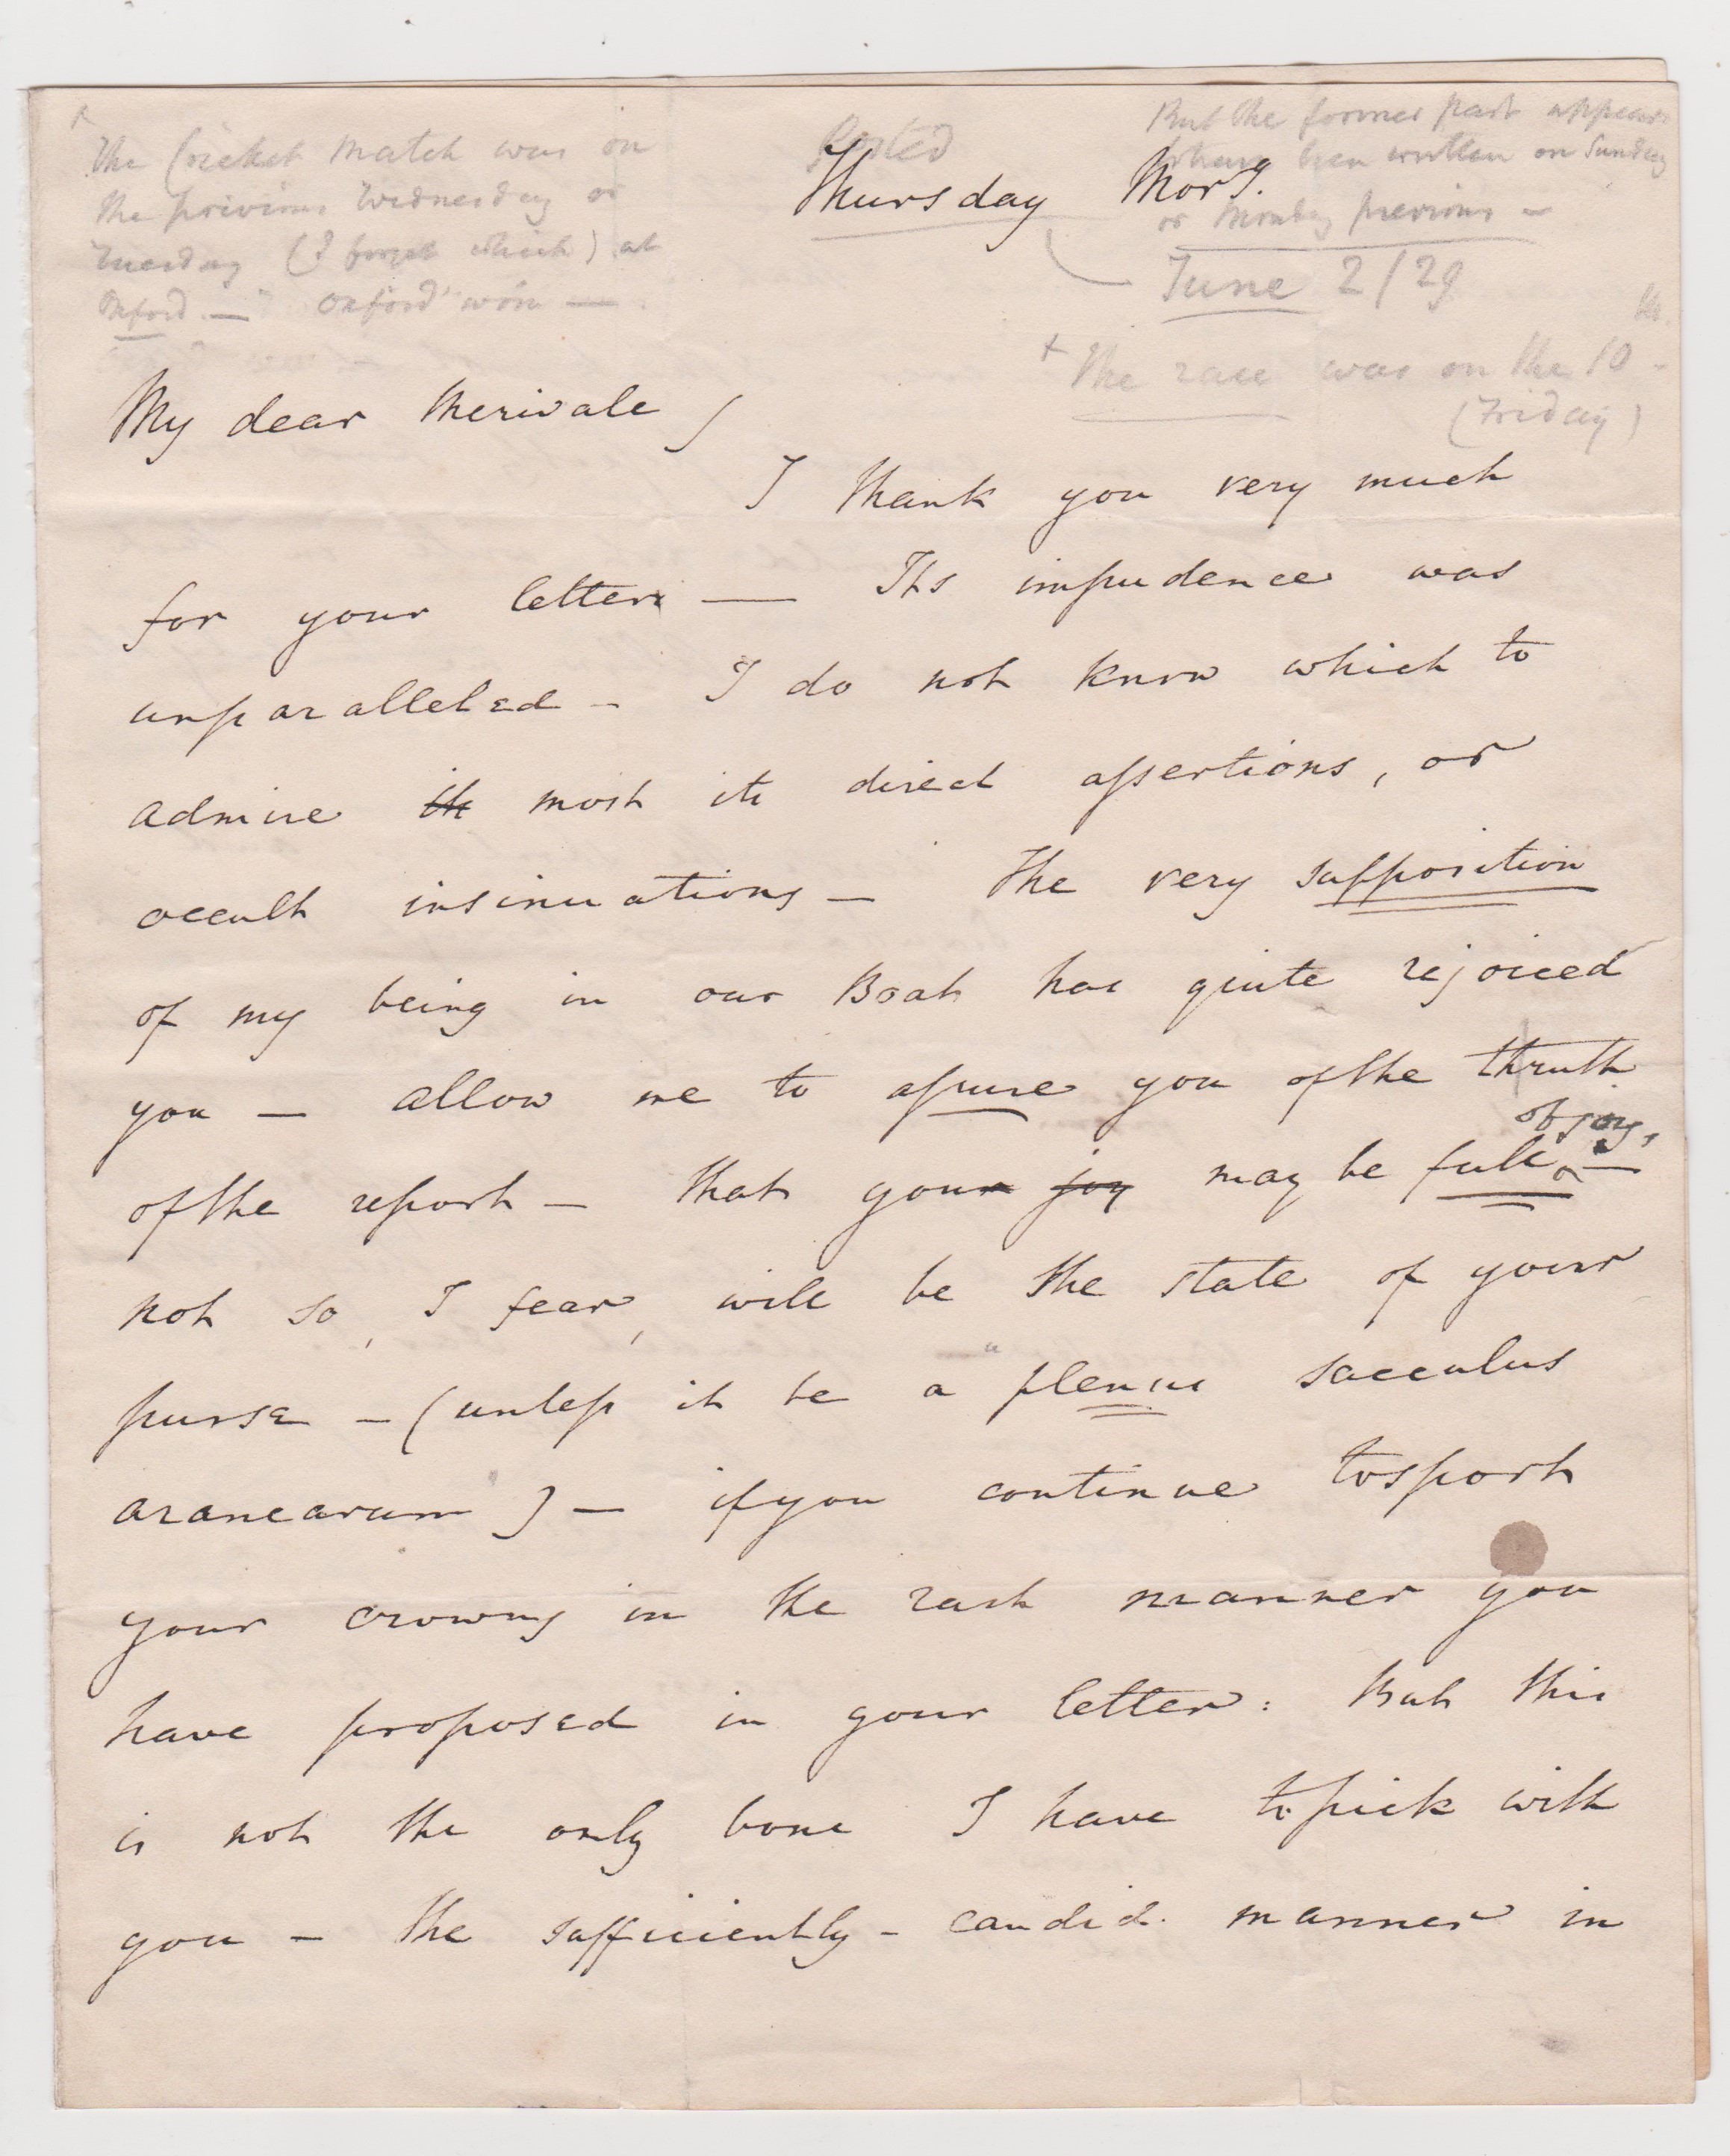 The Cricket Match was on
the previous Wednesday or
Tuesday (I forget which) at
Oxford — Oxford won —
Posted
Thursday Morg.
But the former part appears
to have been written on Sunday
or Monday previous —
June 2 / 29
+ The race was on the 10th
(Friday)
My dear Merivale,
I thank you very much
for your letter — Its impudence was
unparalleled - I do not know which to
admire it most its direct assertions, or
occult insinuations — The very supposition
of my being in our Boat has quite rejoiced
you — allow me to assure you of the thruth
of the report — that your joy may be full of joy, —
not so, I fear, will be the state of your
purse — (unless it be a "plenus sacculus
aranearum") — if you continue to sport
your crowns in the rash manner you
have proposed in your letter: But this
is not the only bone I have to pick with
you — the sufficiently - candid manner in